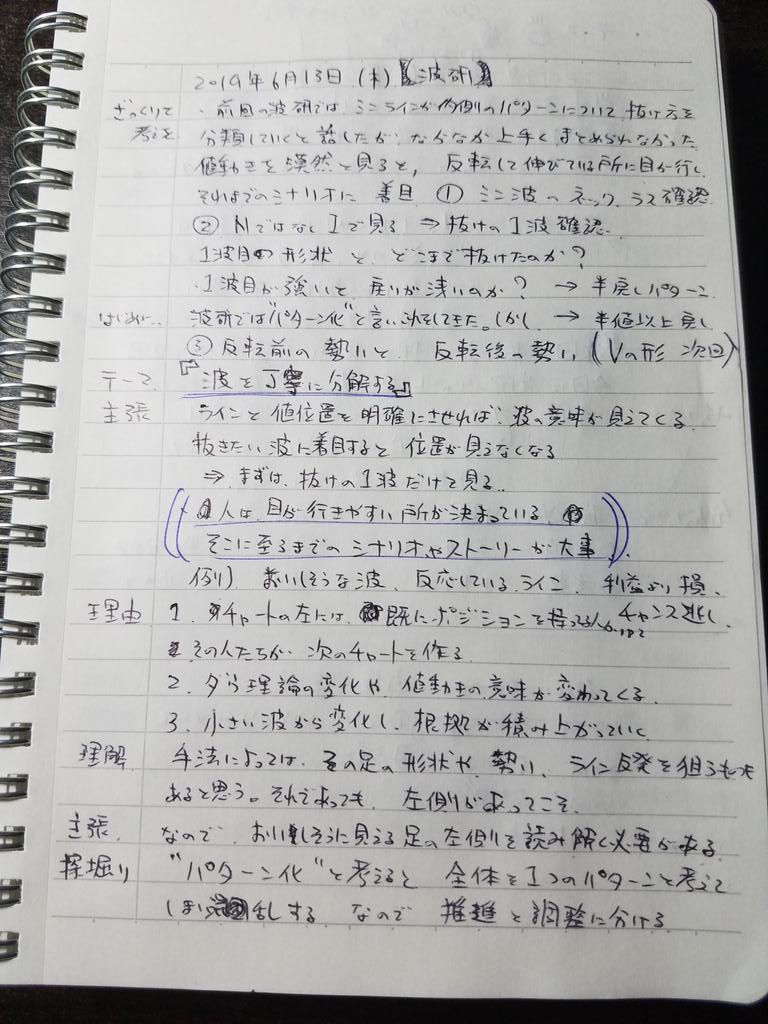 2019年6月13日(木)【波研】
ざっくりと ・前回の波研では、ミニラインが内側のパターンについて 抜け方を
考えを 分類していくと話したが、なかなか上手くまとめられなかった
値動きを漠然と見ると、反転して伸びている所に目が行く
それまでのシナリオに着目 ① ミニ波のネック、ラス確認
② Nではなく1で見る ⇒ 抜けの1波確認
1波目の形状と、どこまで抜けたのか?
・1波目が強いと戻りが浅いのか? → 半戻しパターン
はじめに 波研では"パターン化"と言い してきた。しかし → 半値以上戻し
③ 反転前の勢いと 反転後の勢い (Vの形 次回)
テーマ 『波を丁寧に分解する』
主張 ラインと値位置を明確にさせれば、波の意味が見えてくる
抜きたい波に着目すると位置が見えなくなる
⇒ まずは、抜けの1波だけを見る。
人は、目が行きやすい所が決まっている。
そこに至るまでのシナリオやストーリーが大事
例) おいしそうな波、反応しているライン、利益より損、
理由 1. チャートの左には、既にポジションを持ってる人が チャンス逃し
その人たちが、次のチャートを作る
2. ダウ理論の変化や、値動きの意味が変わってくる
3. 小さい波から変化し、根拠が積み上がっていく
理解 手法によっては、その足の形状や、勢い、ライン反発を狙うものも
あると思う。それであっても、左側があってこそ。
主張 なので、おいしそうに見える足の左側を読み解く必要がある
深堀り "パターン化"と考えると 全体を1つのパターンと考えて
しまい 乱する なので 推進と調整に分ける